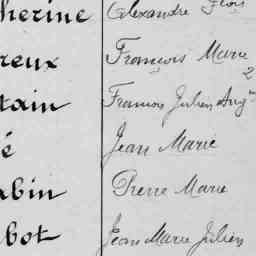 herine Alexandre Flois
reux François Marie
2
tain Francois Julien Aug^in
é Jean Marie
abin Pierre Marie
bot Jean Marie Julien